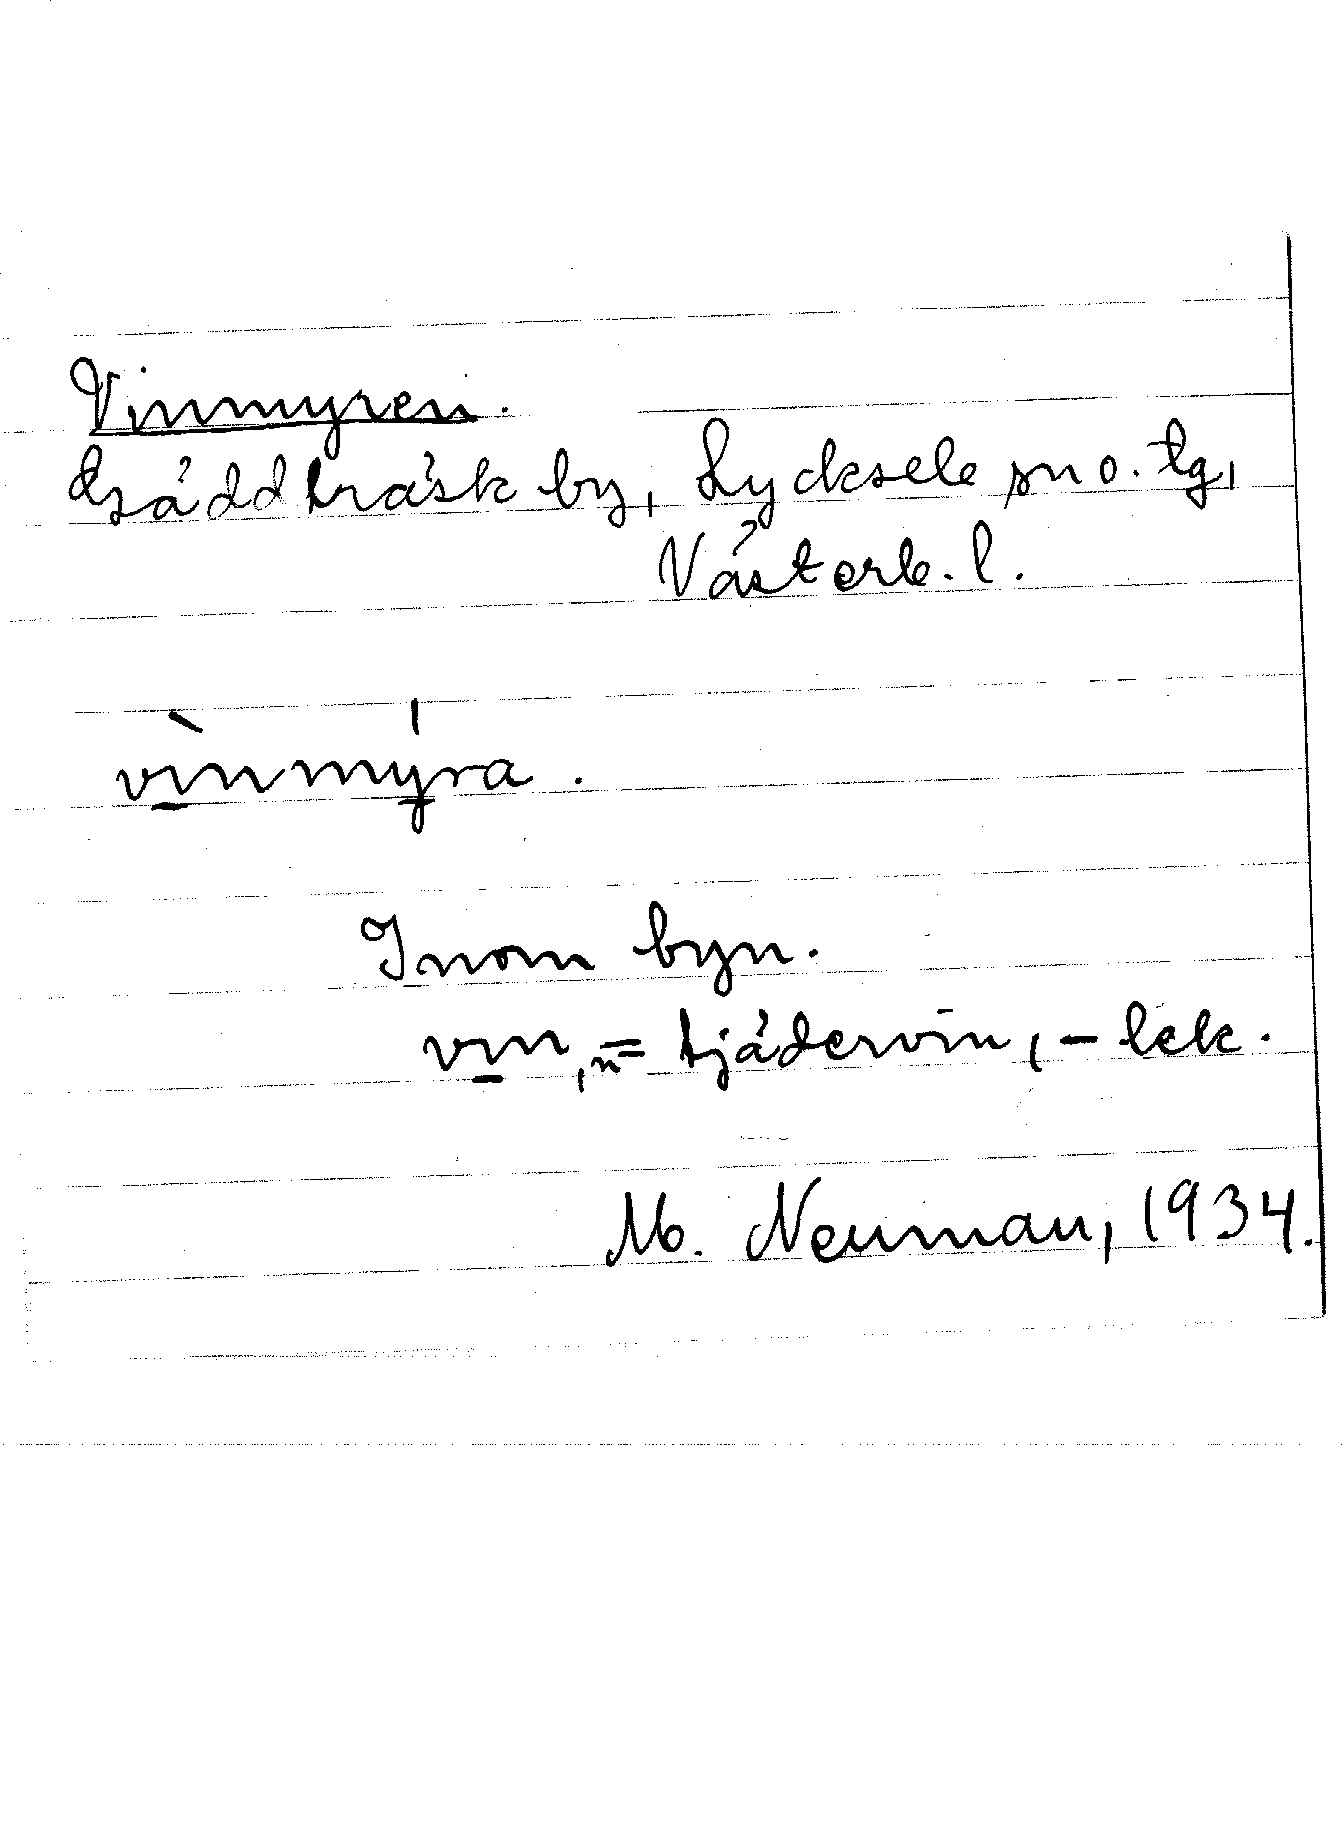 Vinmyren.
Gäddträsk by, Lycksele sn o. tg,
Västerb. l.
vı̠̀nmý̠ra.
Inom byn.
vı̠n, n = tjädervin, - lek.
M. Neuman, 1934.